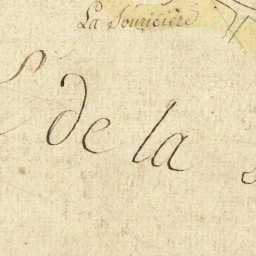 La Souricière
de la